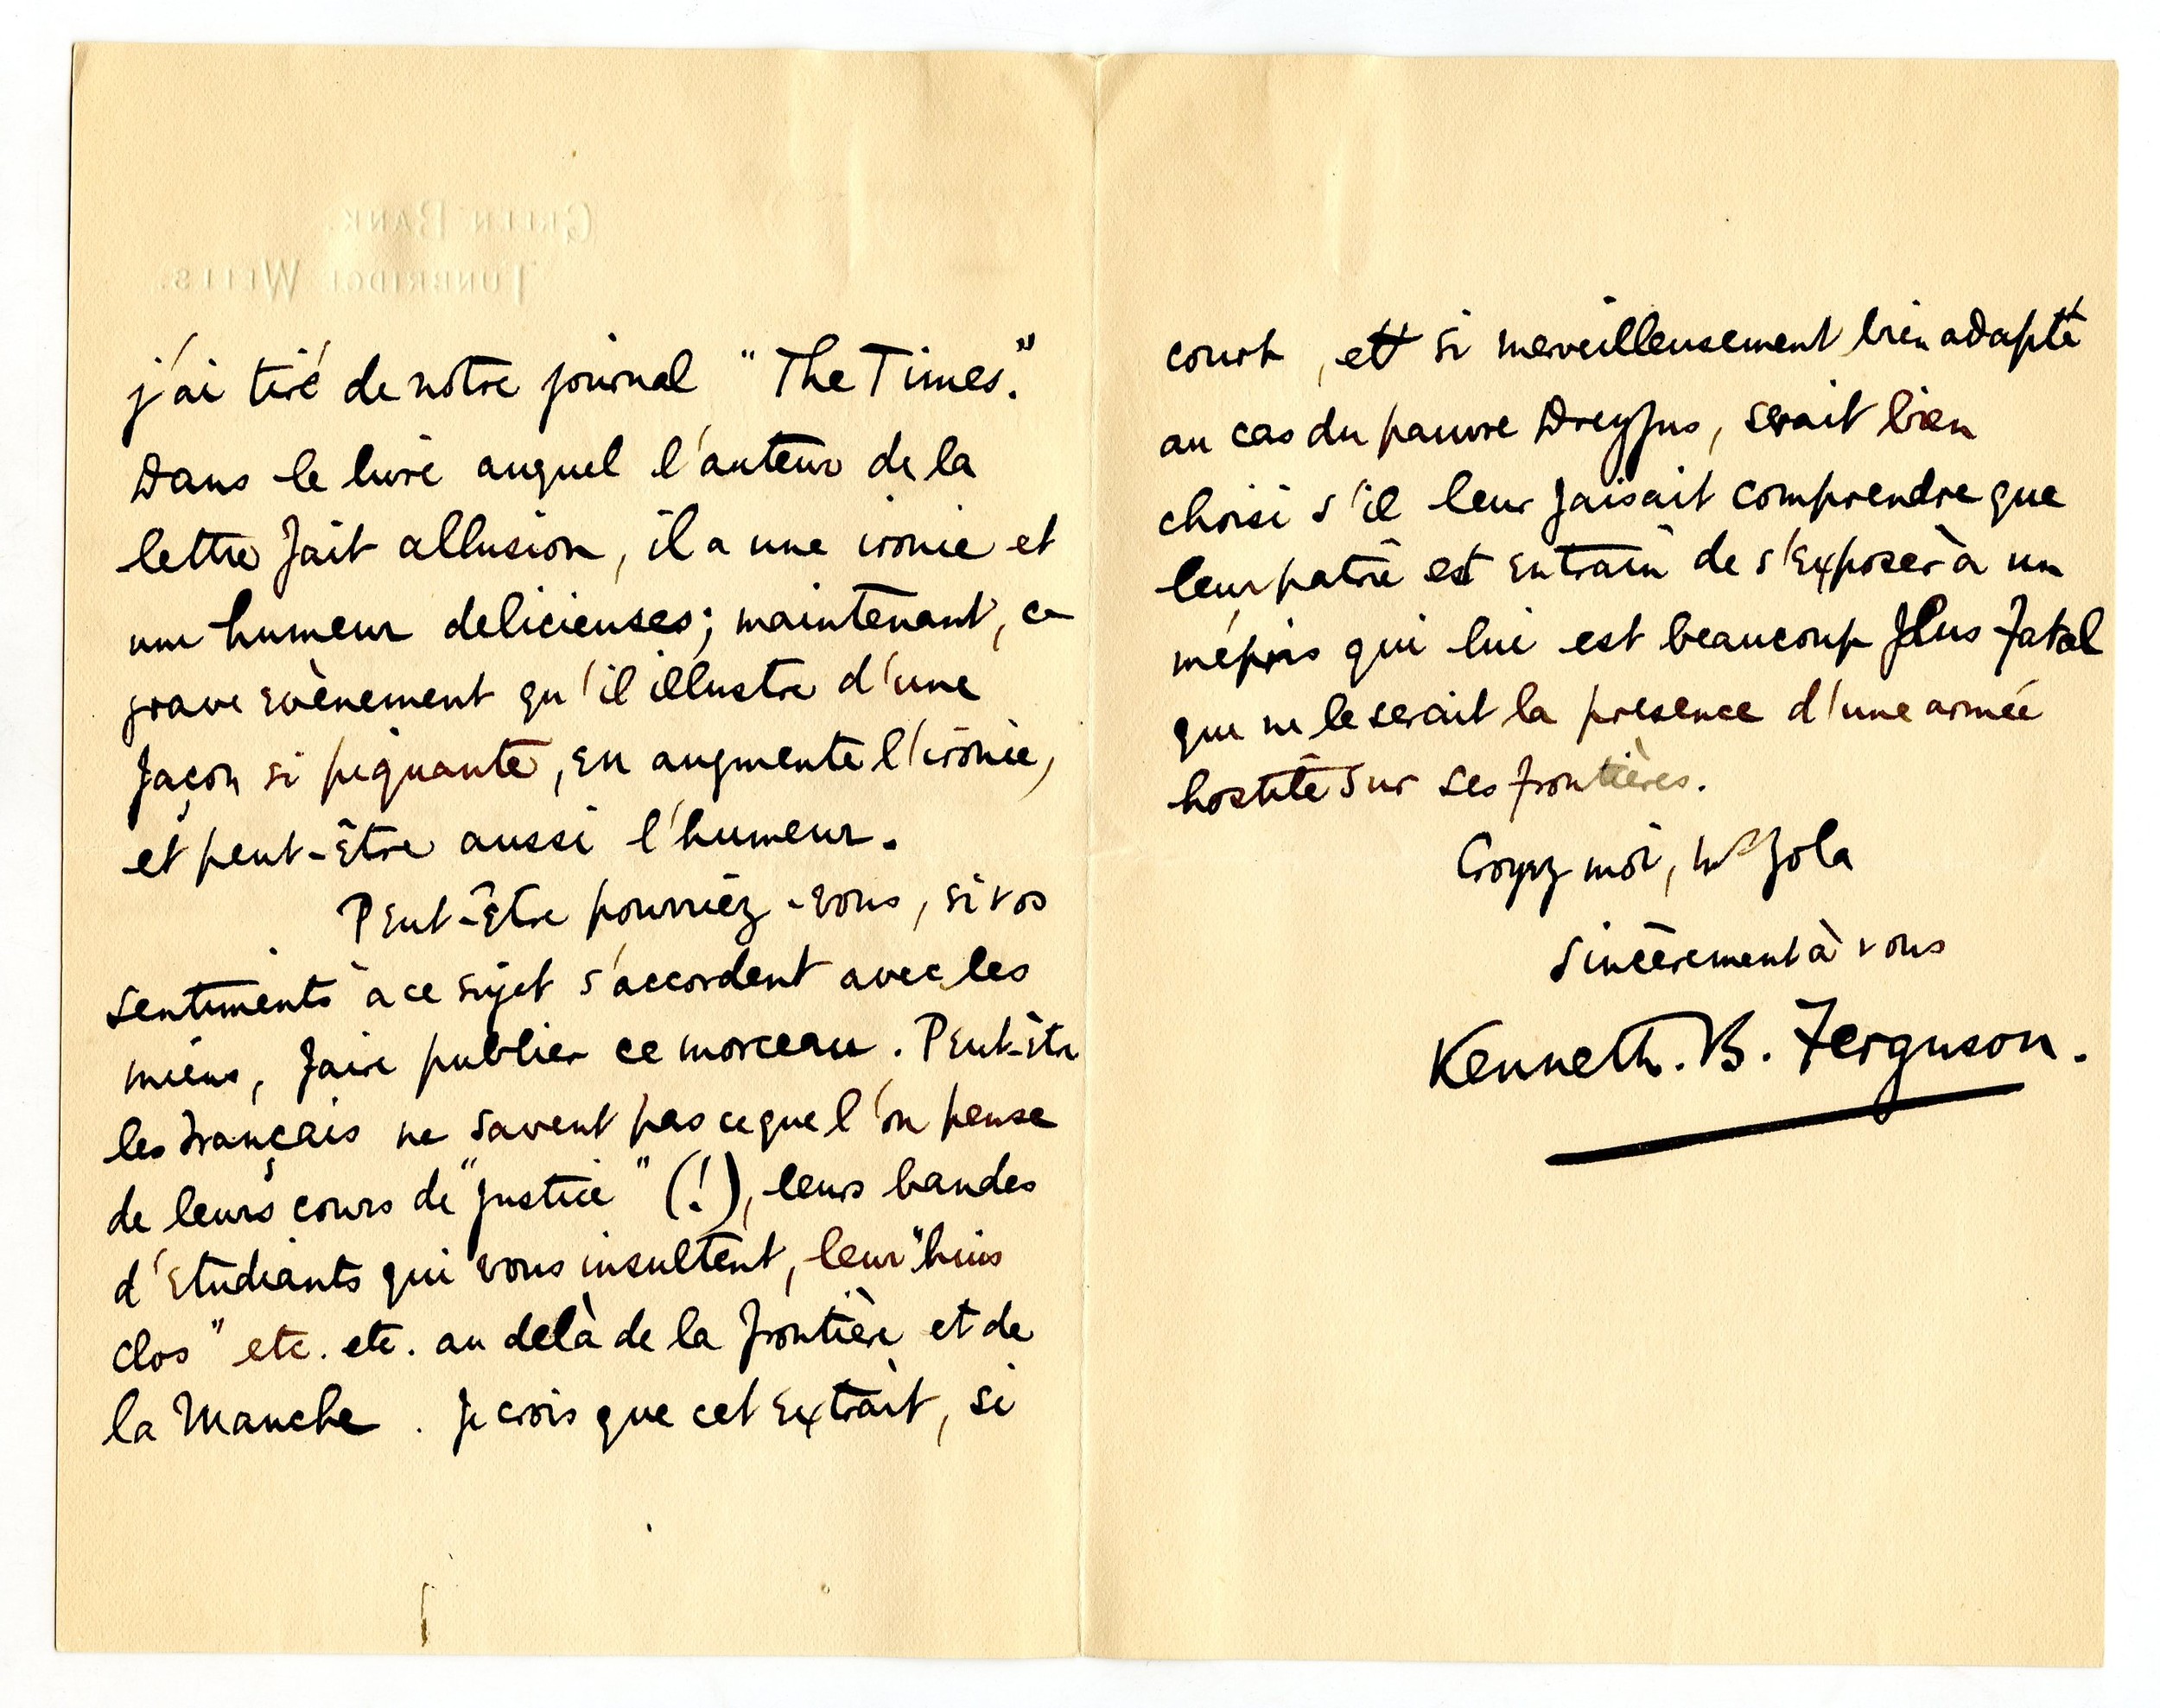 GREEN BANK.
TUNBRIDGE WELLS.
j'ai tiré de notre journal "The Times."
Dans le livre auquel l'auteur de la
lettre fait allusion, il a une ironie et
une humeur delicieuses; maintenant, ce
grave evènement qu'il illustre d'une
façon si piquante, en augmente l'ironie,
et peut-être aussi l'humeur.
Peut-être pourriez-vous, si vos
sentiments à ce sujet s'accordent avec les
miens, faire publier ce morceau. Peut-être
les Français ne savent pas ce que l'on pense
de leurs cours de "justice" (!), leurs bandes
d'etudiants qui vous insultent, leur "huis
clos" etc. etc. au delà de la frontière et de
la Manche. Je crois que cet extrait, si
court, et si merveilleusement bien adapté
au cas du pauvre Dreyfus, serait bien
choisi s'il leur faisait comprendre que
leur patrie est en train de s'exposer à un
mépris qui lui est beaucoup plus fatal
que ne le serait la presence d'une armée
hostile sur ses frontières.
Croyez moi, Mr Zola
Sincèrement à vous
Kenneth. B. Ferguson.